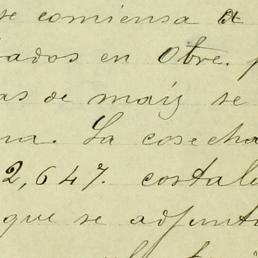 se comiensa a
ados en Obre.
as de maiz se
na. La cosecha
2,647. costale
que se adjunt